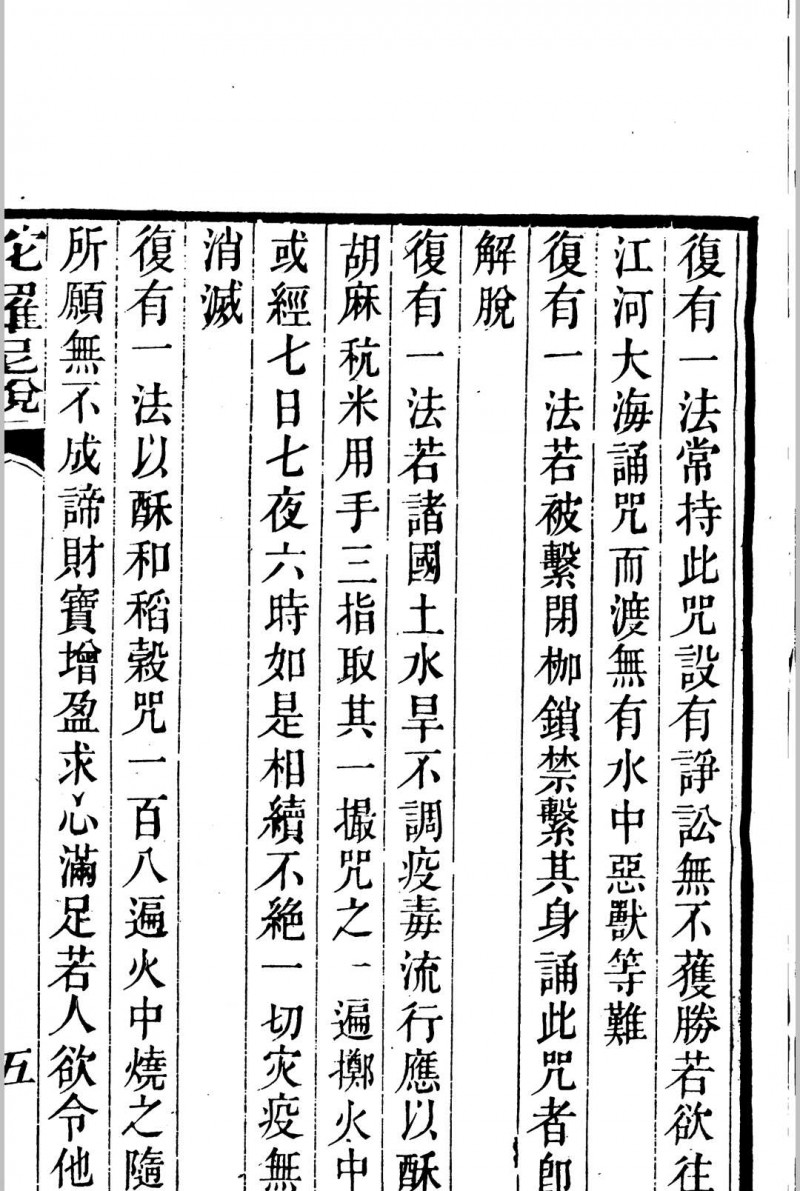 復有一法常持此咒設有諍訟無不獲勝若欲往
江河大海誦咒而渡無有水中惡獸等難
復有一法若被繫閉枷鎖禁繫其身誦此咒者即
解脫
復有一法若諸國土水旱不調疫毒流行應以酥
胡麻秔米用手三指取其一撮咒之一遍擲火中
或經七日七夜六時如是相續不絕一切灾疫無
消滅
復有一法以酥和稻穀咒一百八遍火中燒之隨
所願無不成諦財寶增盈求心滿足若人欲令他
陀羅尼說
五